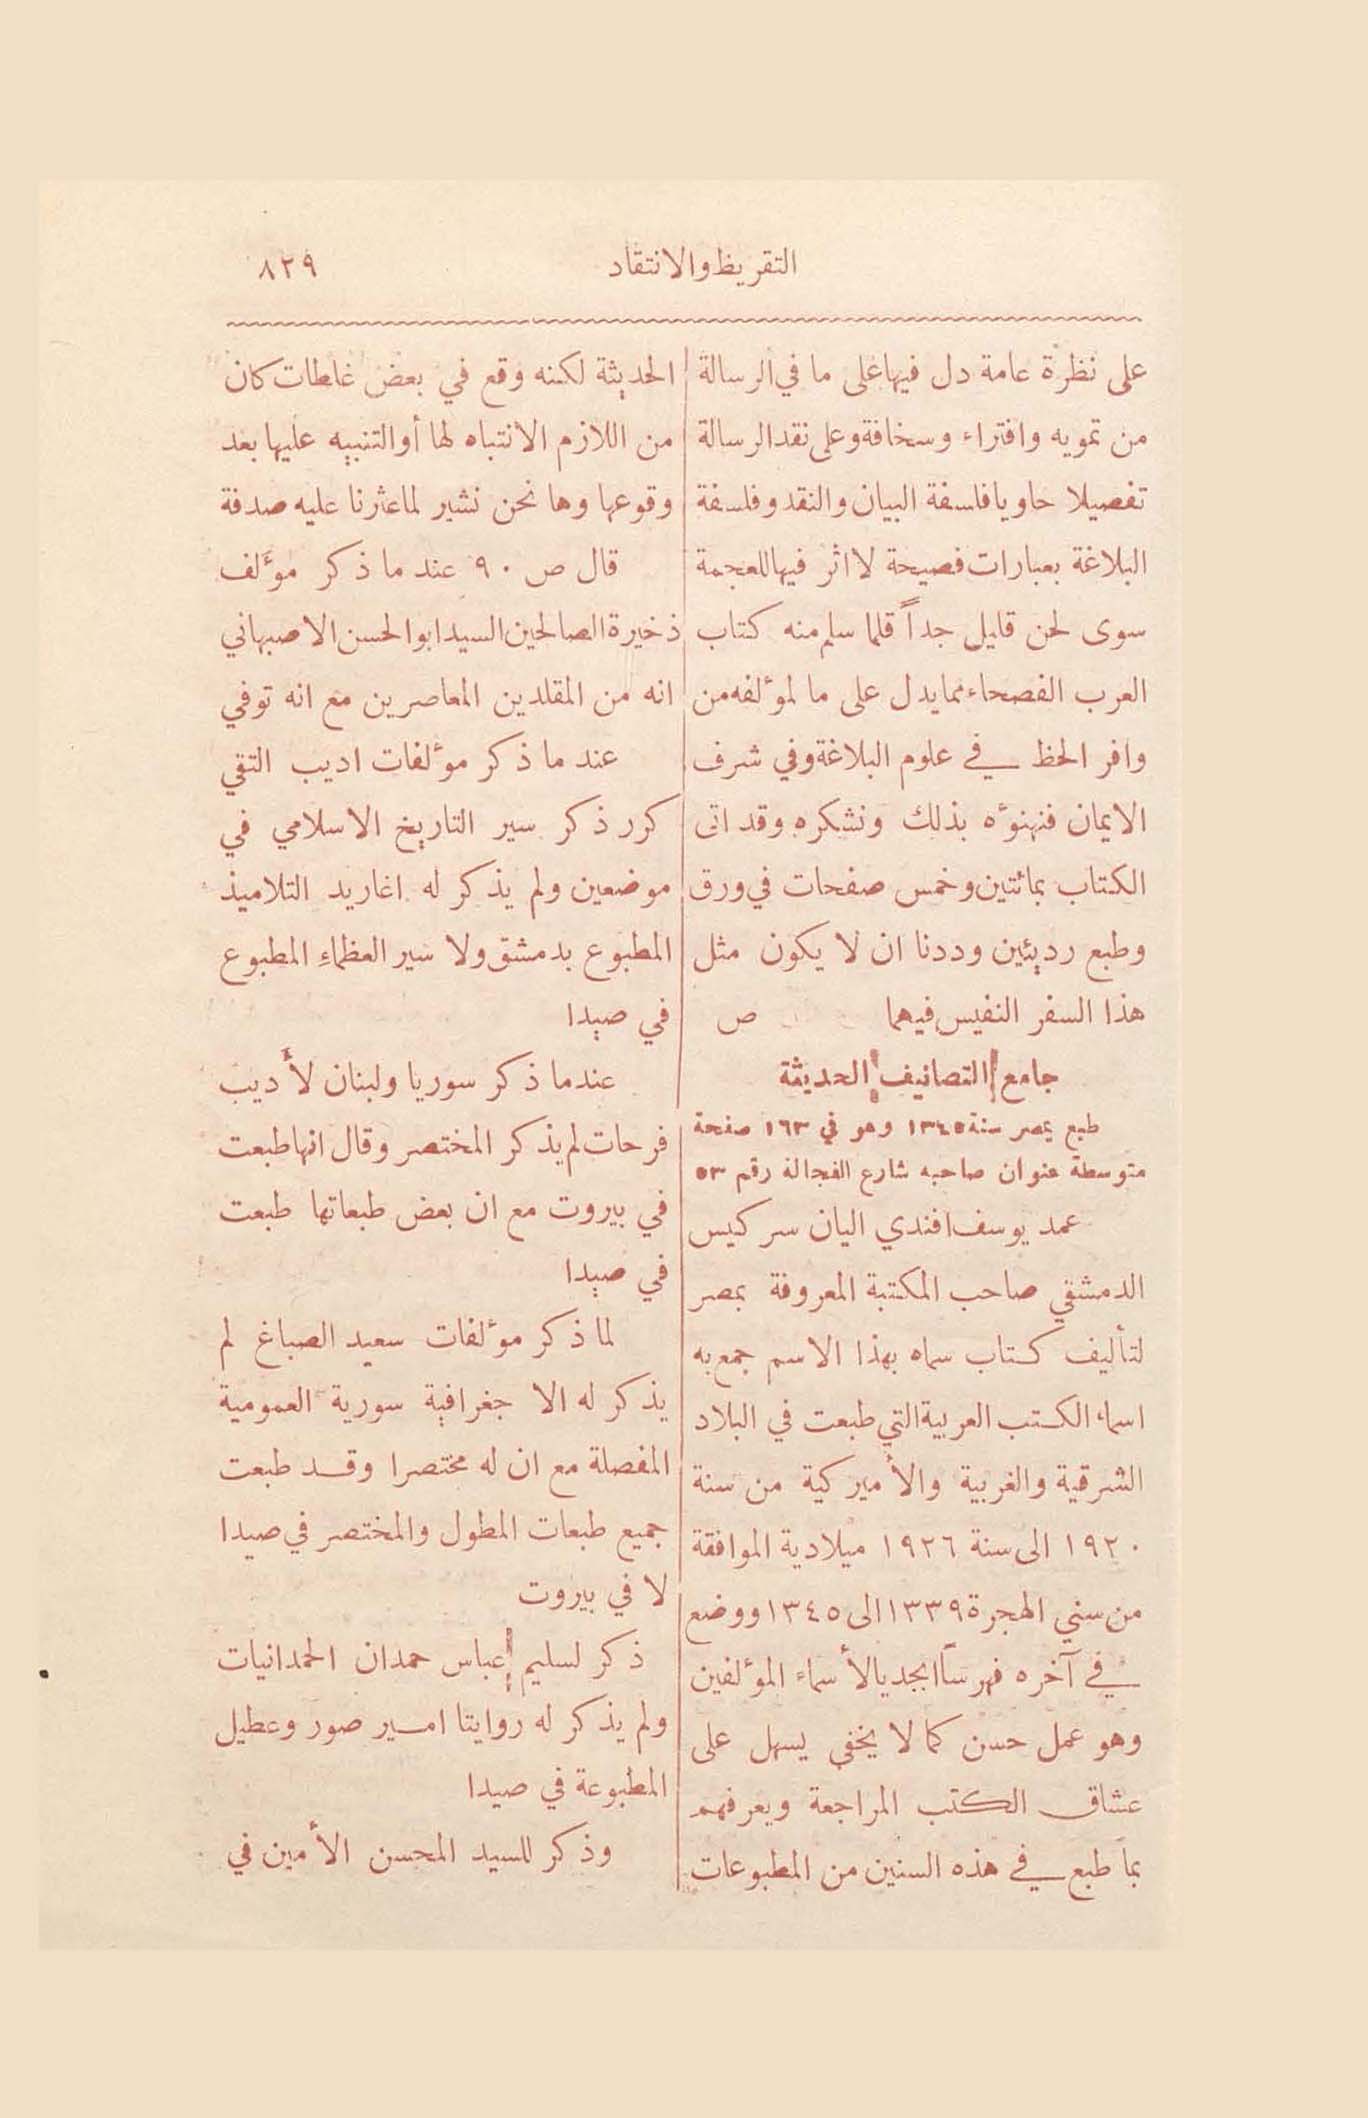 التقريظ والانتقاد
٨٢٩
على نظرة عامة دل فيها على ما في الرسالة
من تمويه وافتراء وسخافة وعلى نقد الرسالة
تفصيلا حاويا فلسفة البيان والنقد وفلسفة
البلاغة بعبارات فصيحة لا اثر فيها للعجمة
سوى لحن قليل جداً قلما سلم منه كتاب
العرب الفصحاء مما يدل على ما لمؤلفه من
وافر الحظ في علوم البلاغة وفي شرف
الايمان فنهنؤه بذلك ونشكره وقد اتى
الكتاب بمائتين وخمس صفحات في ورق
وطبع رديئين وددنا ان لا يكون مثل
هذا السفر النفيس فيهما ص
جامع التصانيف الحديثة
طبع بمصر سنة ١٣٤٥ وهو في ١٦٣ صفحة
متوسطة عنوان صاحبه شارع الفجالة رقم ٥٣
عمد يوسف افندي اليان سركيس
الدمشقي صاحب المكتبة المعروفة بمصر
لتأليف كتاب سماه بهذا الاسم جمع به
اسماء الكتب العربية التي طبعت في البلاد
الشرقية والغربية والأميركية من سنة
١٩٢٠ الى سنة ١٩٢٦ ميلادية الموافقة
من سني الهجرة ١٣٣٩ الى ١٣٤٥ ووضع
في آخره فهرساً ابجديا لأسماء المؤلفين
وهو عمل حسن كما لا يخفى يسهل على
عشاق الكتب المراجعة ويعرفهم
بما طبع في هذه السنين من المطبوعات
الحديثة لكنه وقع في بعض غلطات كان
من اللازم الانتباه لها أو التنبيه عليها بعد
وقوعها وها نحن نشير لما عثرنا عليه صدفة
قال ص ٩٠ عند ما ذكر مؤلف
ذخيرة الصالحين السيد ابو الحسن الاصبهاني
انه من المقلدين المعاصرين مع انه توفي
عند ما ذكر مؤلفات اديب التقي
كرر ذكر سير التاريخ الاسلامي في
موضعين ولم يذكر له اغاريد التلاميذ
المطبوع بدمشق ولا سير العظماء المطبوع
في صيدا
عندما ذكر سوريا ولبنان لأديب
فرحات لم يذكر المختصر وقال انها طبعت
في بيروت مع ان بعض طبعاتها طبعت
في صيدا
لما ذكر مؤلفات سعيد الصباغ لم
يذكر له الا جغرافية سورية العمومية
المفصلة مع ان له مختصرا وقد طبعت
جميع طبعات المطول والمختصر في صيدا
لا في بيروت
ذكر لسليم عباس حمدان الحمدانيات
ولم يذكر له روايتا امير صور وعطيل
المطبوعة في صيدا
وذكر للسيد المحسن الأمين في